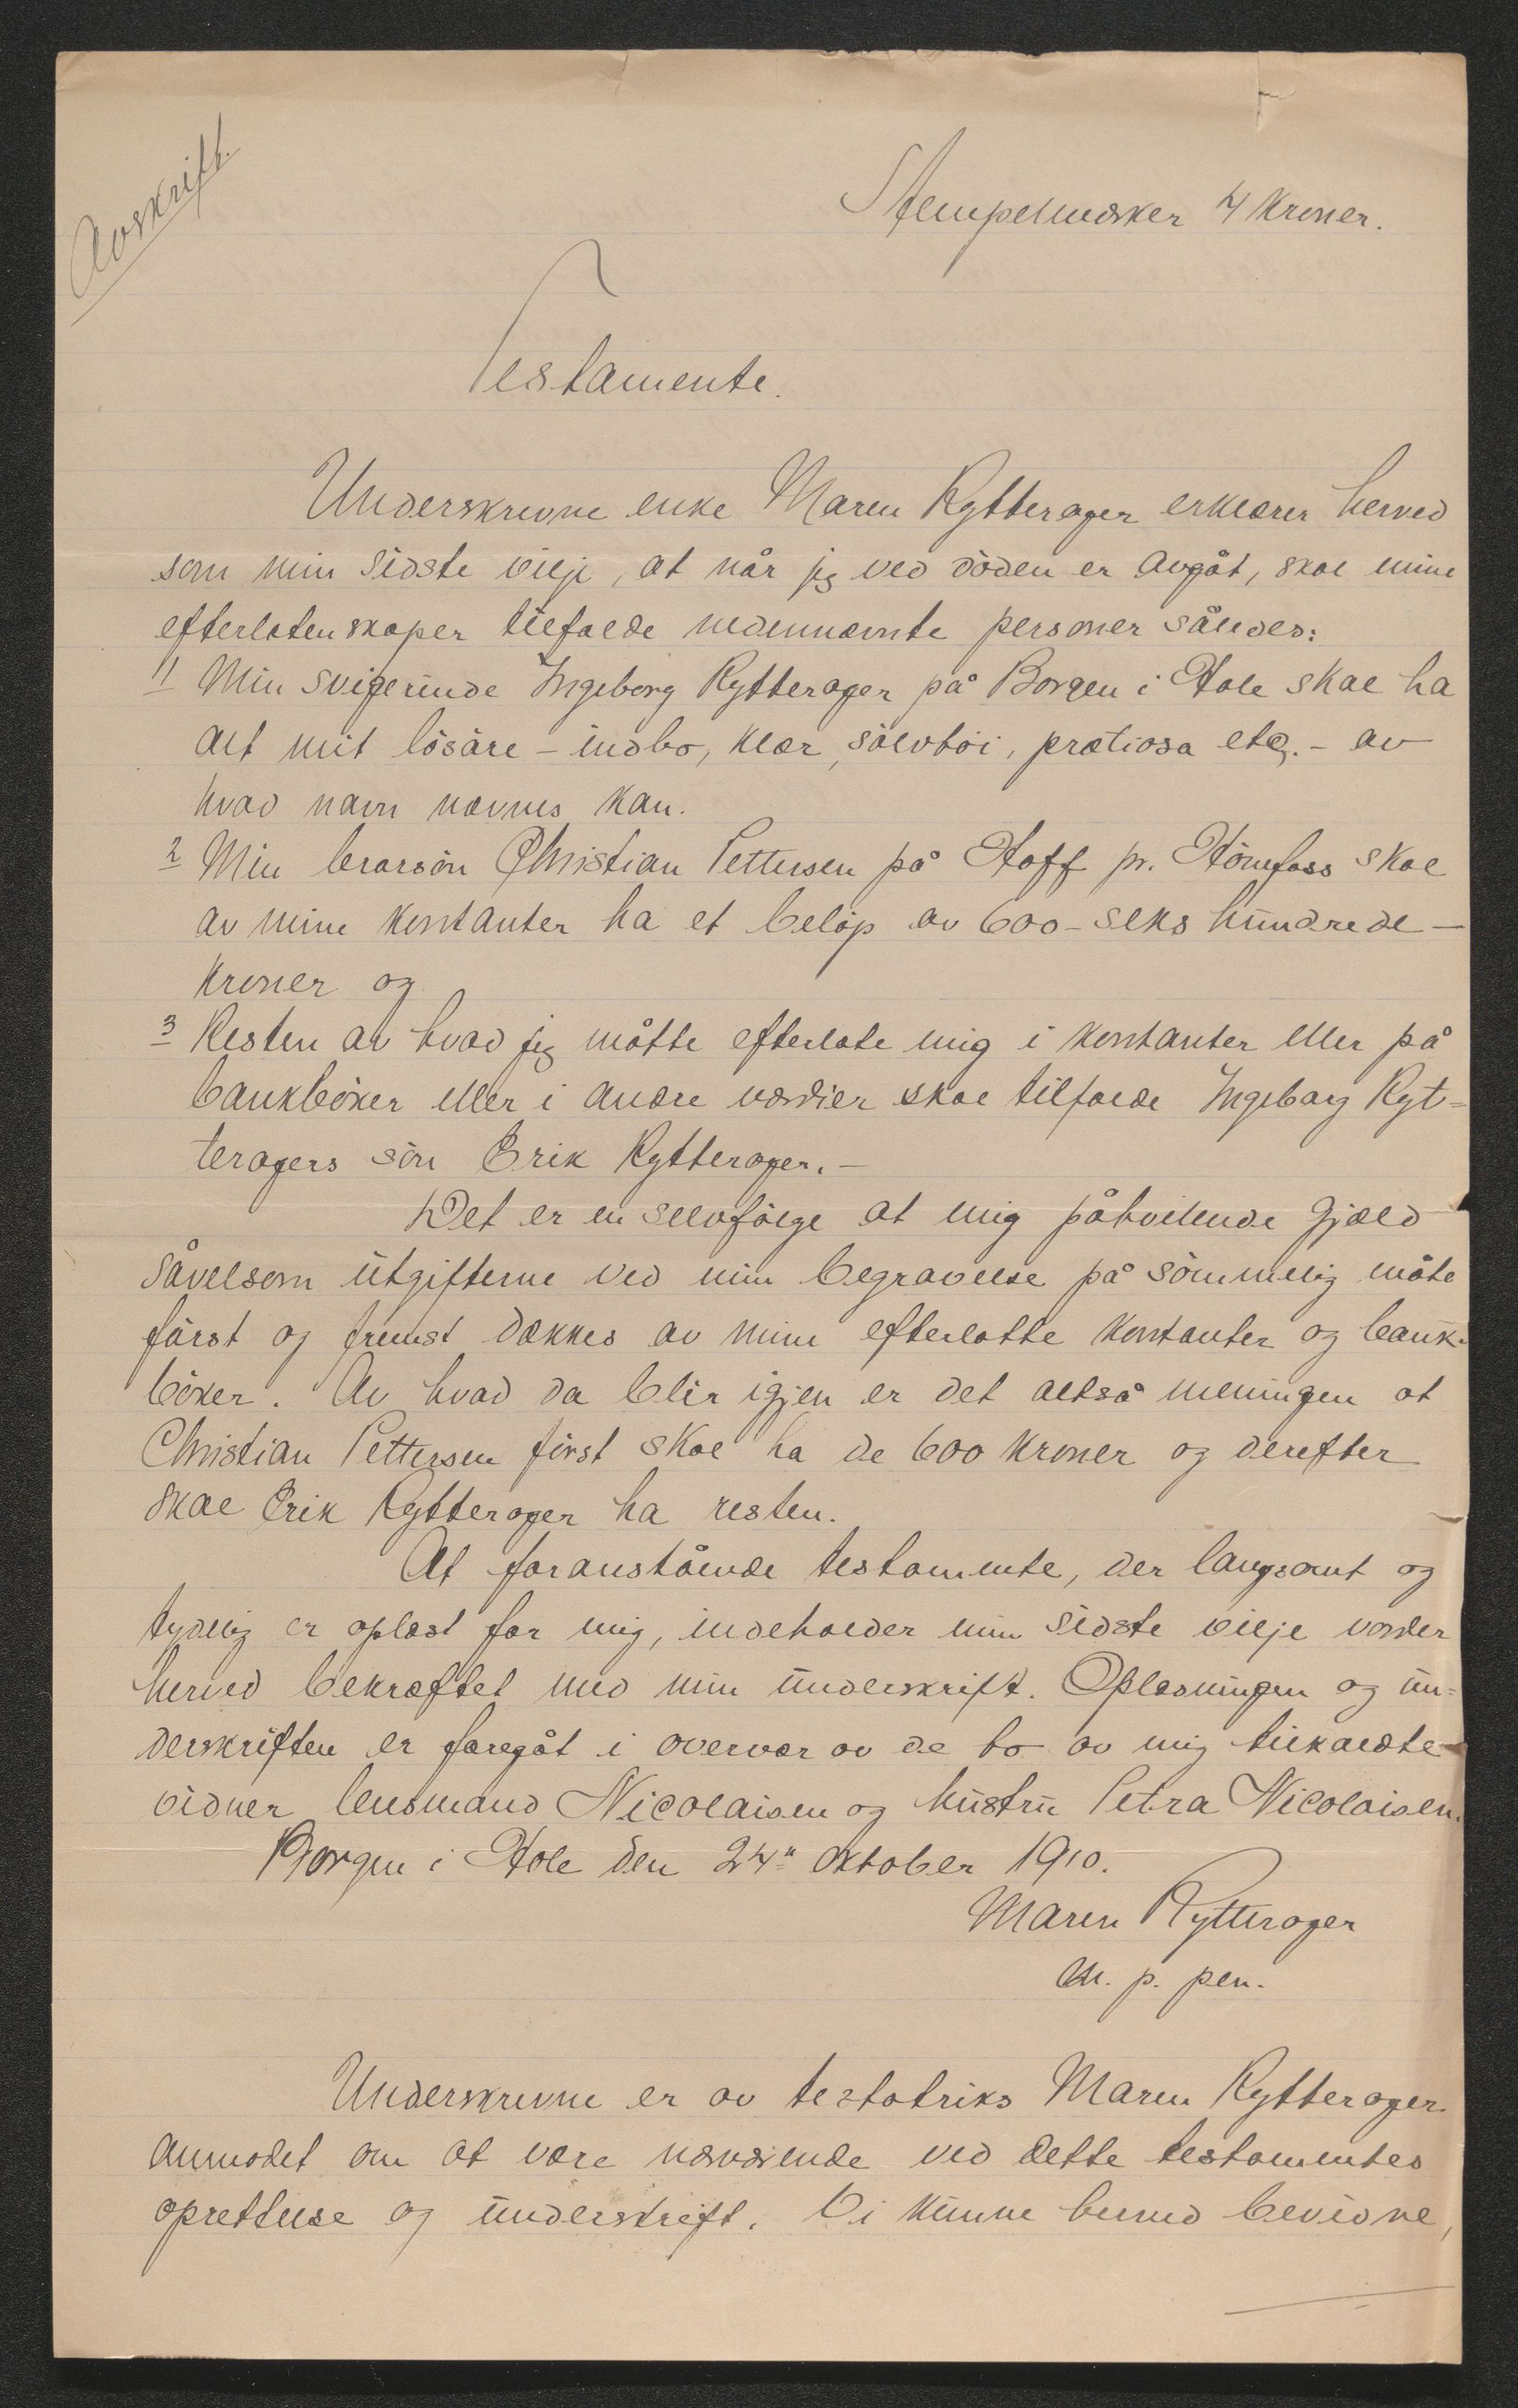 Avskrift.
Stempelmærker 4 kroner.
Testamente.
Underskrevne enke Maren Rytterager erklærer herved
som min sidste vilje, at når jeg ved döden er avgåt, skal mine
efterlatenskaper tilfalde nedennævnte personer således:
1) Min svigerinde Ingeborg Rytterager på Borgen i Hole skal ha
alt mit lösöre – indbo, klær, sölvtöi, prætiosa etc. – av
hvad navn nævnes kan.
2 Min brorsön Christian Pettersen på Hoff pr. Hönefoss skal
av mine kontanter ha et belöp av 600 – seks hundrede –
kroner og
3 Resten av hvad jeg måtte efterlate mig i kontanter eller på
bankböker eller i andre værdier skal tilfalde Ingeborg Ryt=
teragers sön Erik Rytterager. –
Det er en selvfölge at mig påhvilende gjæld
såvelsom utgifterne ved min begravelse på sömmelig måte
först og fremst dækkes av mine efterlatte kontanter og bank-
böker. Av hvad da blir igjen er det altså meningen at
Christian Pettersen först skal ha de 600 kroner og derefter
skal Erik Rytterager ha resten.
At foranstående testamente, der langsomt og
tydelig er oplæst for mig, indeholder min sidste vilje vorder
herved bekræftet med min underskrift. Oplæsningen og un=
derskriften er foregåt i overvær av de to av mig tilkaldte
vidner lensmand Nicolaisen og hustru Petra Nicolaisen.
Borgen i Hole den 24" oktober 1910.
Maren Rytterager
m. p. pen.
Underskrevne er av testatriks Maren Rytterager
anmodet om at være nærværende ved dette testamentes
oprettelse og underskrift. Vi kunne herved bevidne,